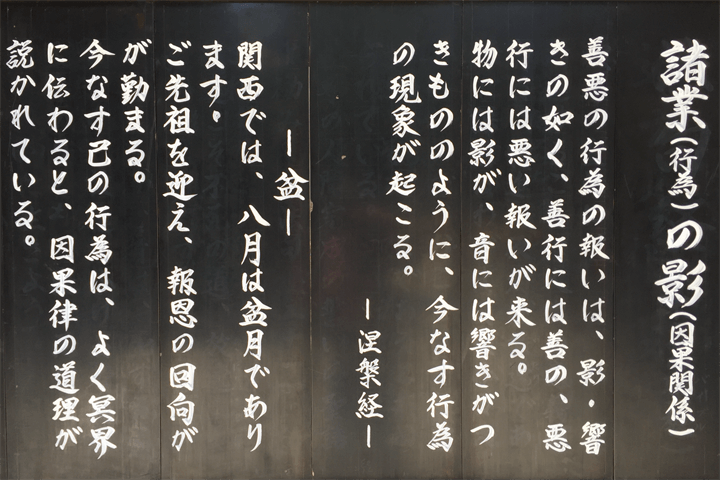 諸業(行為)の影(因果関係)
善悪の行為の報いは、影・響
きの如く、善行には善の、悪
行には悪い報いが来る。
物には影が、音には響きがつ
きもののように、今なす行為
の現象が起こる。
ー涅槃経ー
ー盆ー
関西では、八月は盆月であり
ます。
ご先祖を迎え、報恩の回向が
が勤まる。
今なす己の行為は、よく冥界
に伝わると、因果律の道理が
説かれている。